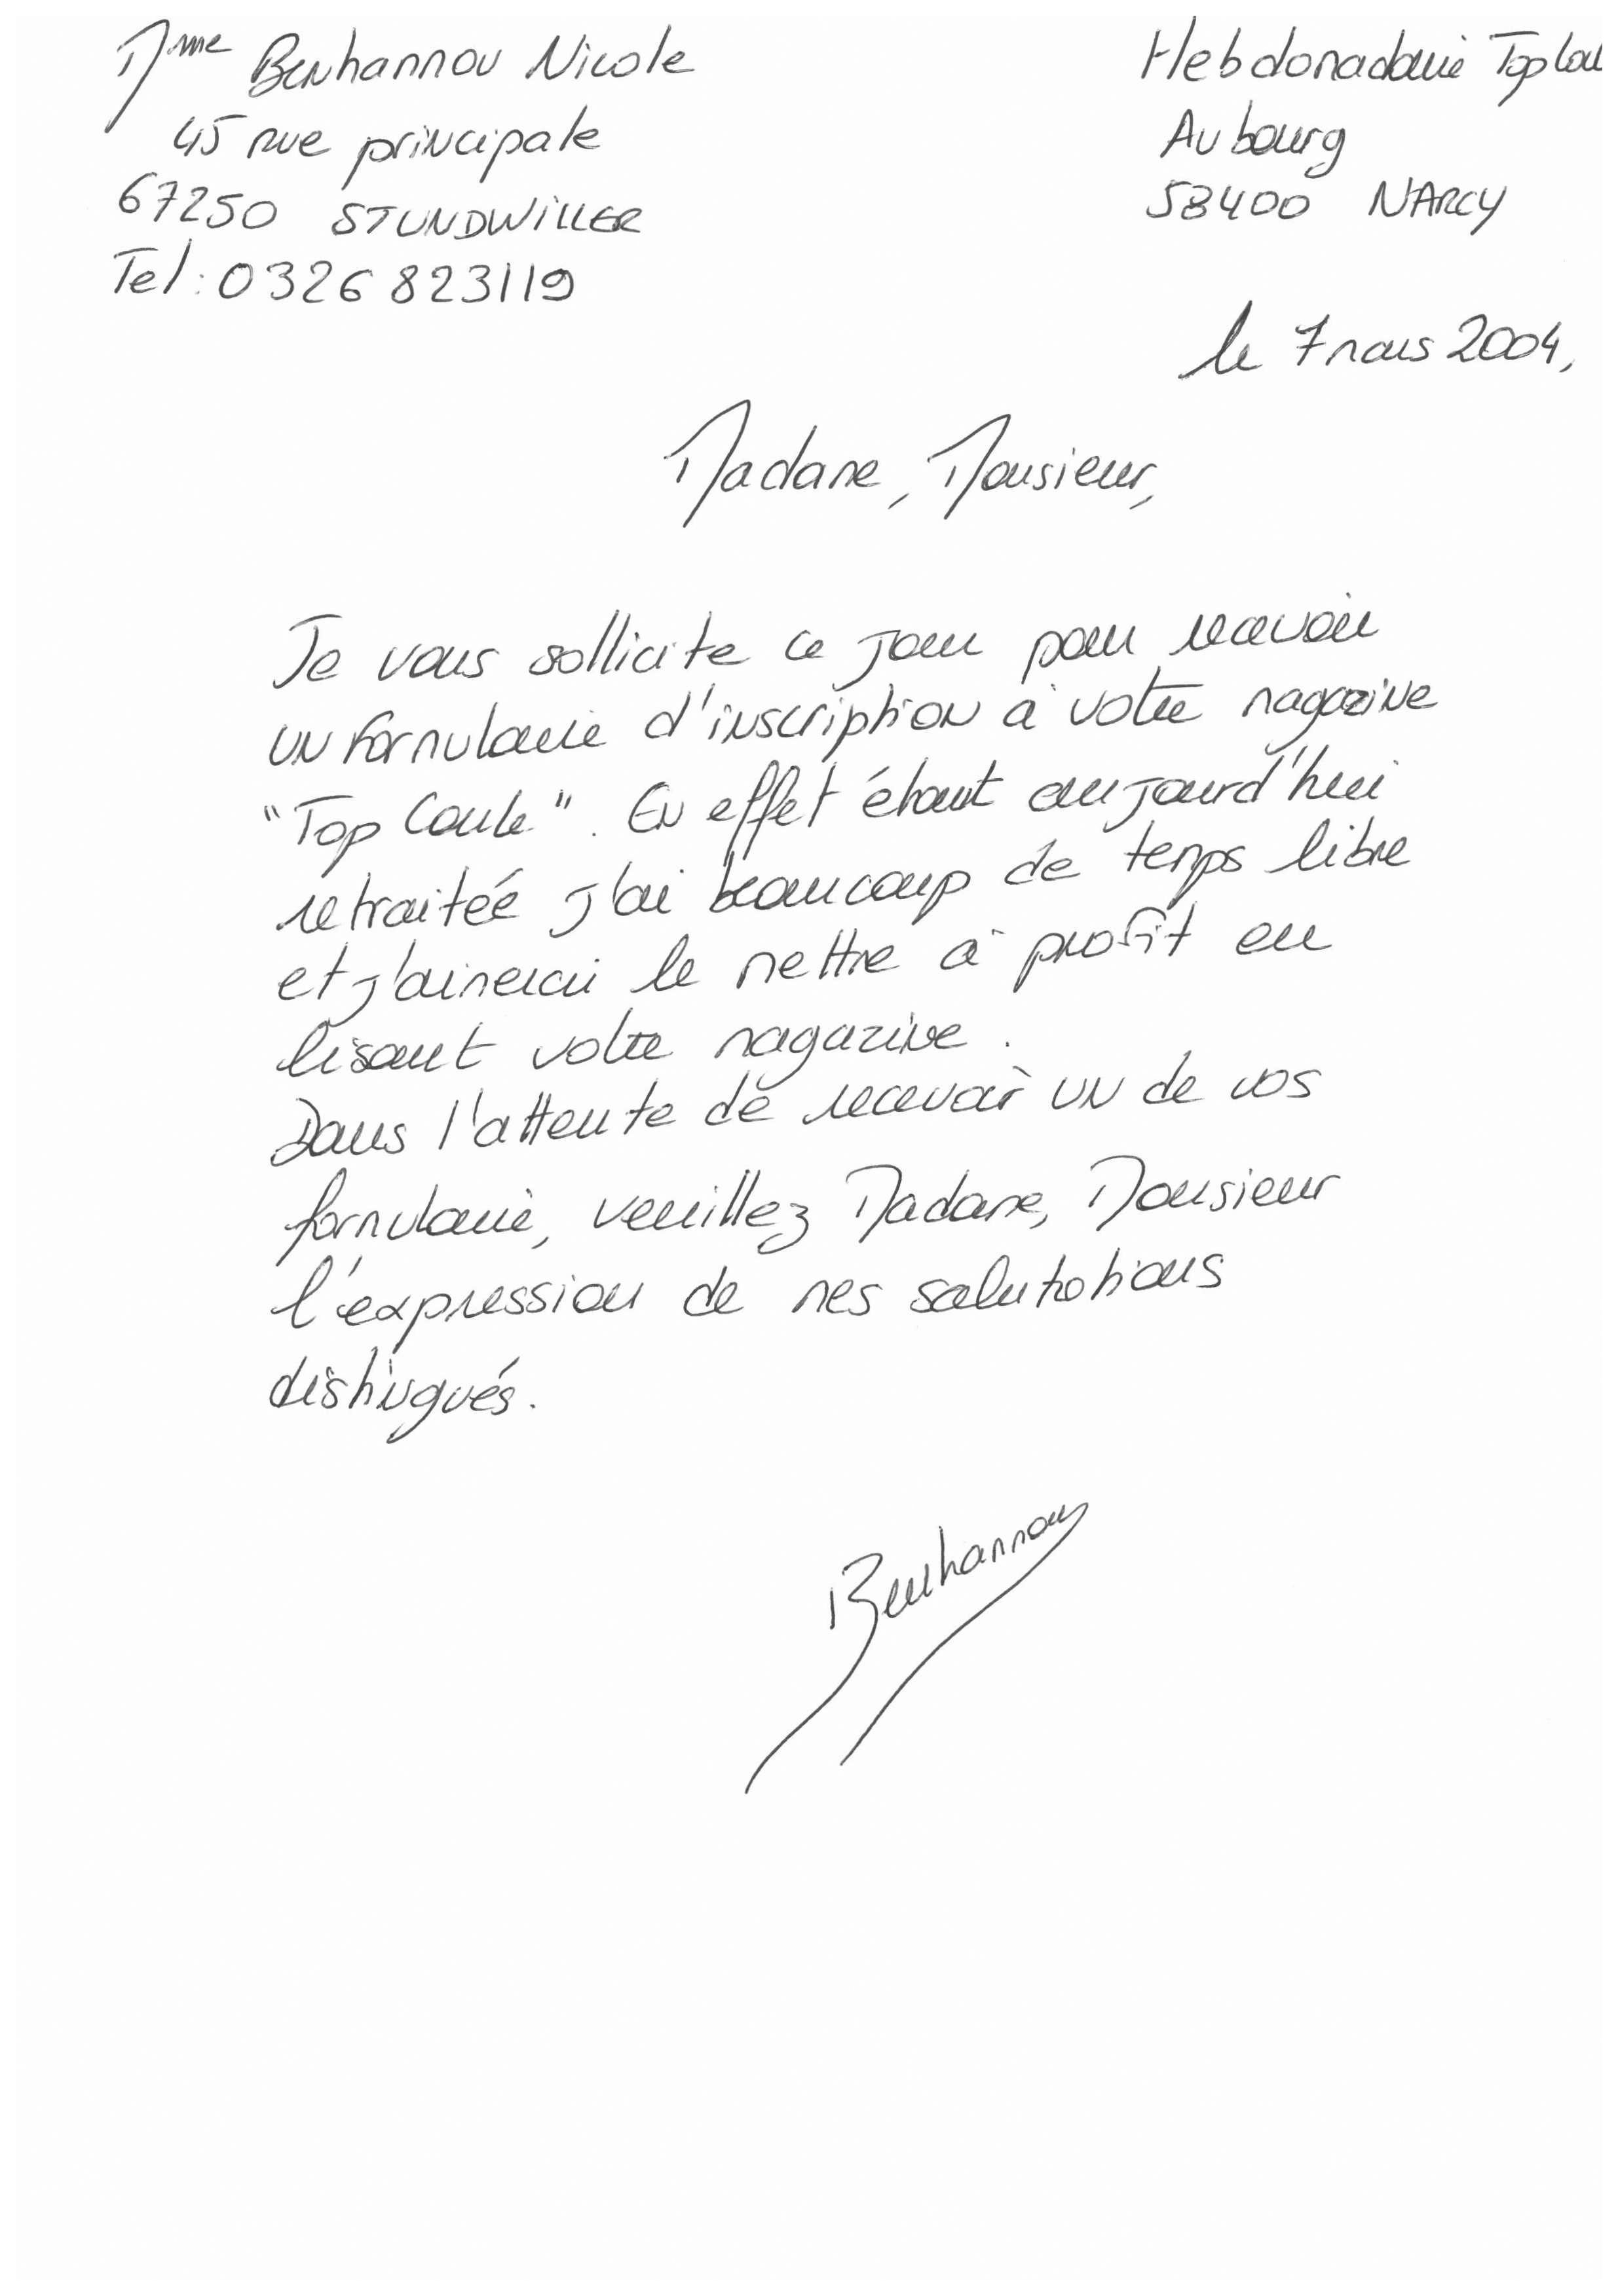 Mme Benhannou Nicole
45 rue principale
67250 STUNDWILLER
Tel : 0326823119
Hebdomadaire Top
Au bourg
58400 NARCY
le 7 mars 2004,
Madame, Monsieur,
Je vous sollicite ce jour pour recevoir
un formulaire d'inscription à votre magazine
"Top". En effet étant aujourd'hui
retraitée j'ai beaucoup de temps libre
et j'aimerai le mettre à profit en
lisant votre magazine.
Dans l'attente de recevoir un de vos
formulaire, veuillez Madame, Monsieur
l'expression de mes salutations
distingués.
Benhannou